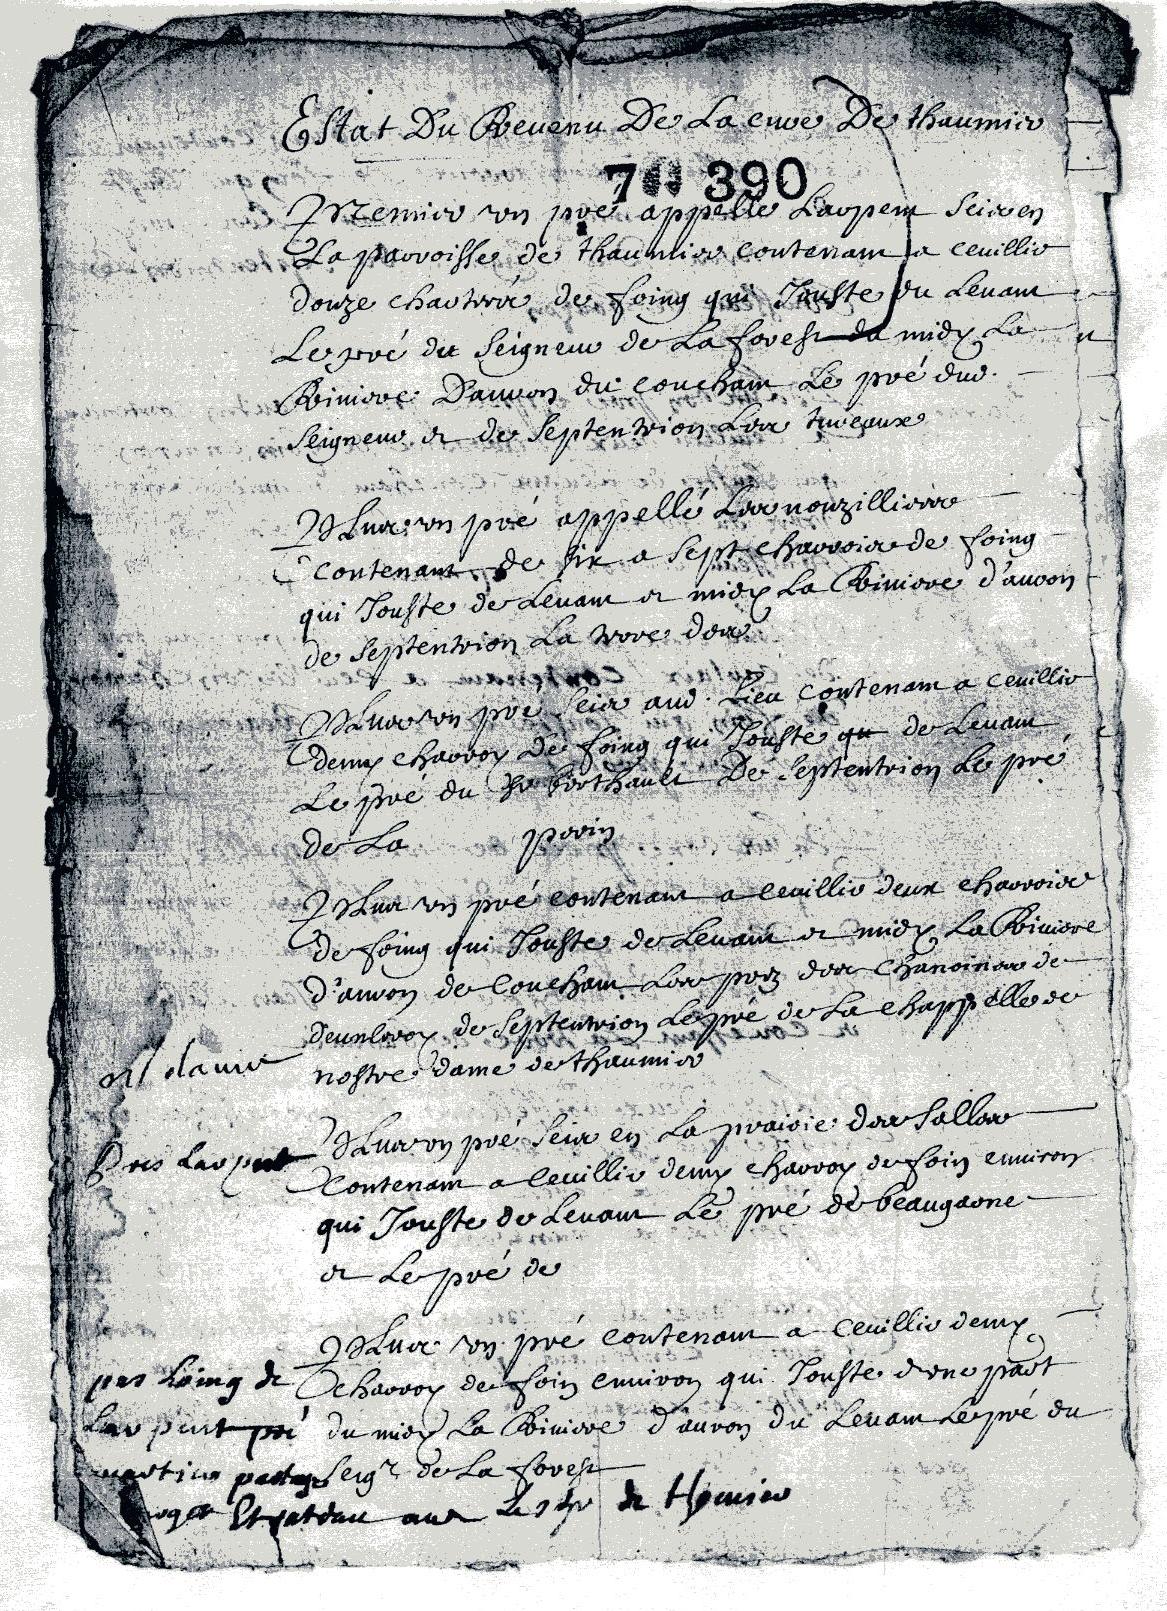 Estat Du Revenu De La cure De thaumier
7 390
Premier un pré appellé Larpent Scis en
La parroisse de thaumier contenant a ceuillir
douze charrois de foing qui Jouste du Levant
Le pré du Seigneur de La forest du midy La
Riviere D'auron du couchant Le pré dud.
Seigneur et de Septentrion Les tureaux
Plus un pré appellé Les nouzillieres
contenant de six a Sept charrois de foing
qui Jouste de Levant et midy La Riviere d'auron
de Septentrion La terre des
Plus un pré Scis aud. Lieu contenant a ceuillir
demy charroy de foing qui Jouste de Levant
Le pré du Sr berthault De Septentrion Le pré
de La perin
Plus un pré contenant a ceuillir deux charrois
de foing qui Jouste de Levant et midy La Riviere
d'auron de couchant Les prez des chanoines de
de Septentrion Le pré de La chappelle de
nostre dame de thaumier
Plus un pré Scis en La prairie des Salles
pres Larpent
contenant a ceuillir demy charroy de foin environ
qui Jouste de Levant Le pré de beaugarne
et Le pré de
Plus un pré contenant a ceuillir demy
pres Loing de
charroy de foin environ qui Jouste d'une part
Larpent pré
du midy La Riviere d'auron du Levant Le pré du
Seigr de La forest
de thaumier